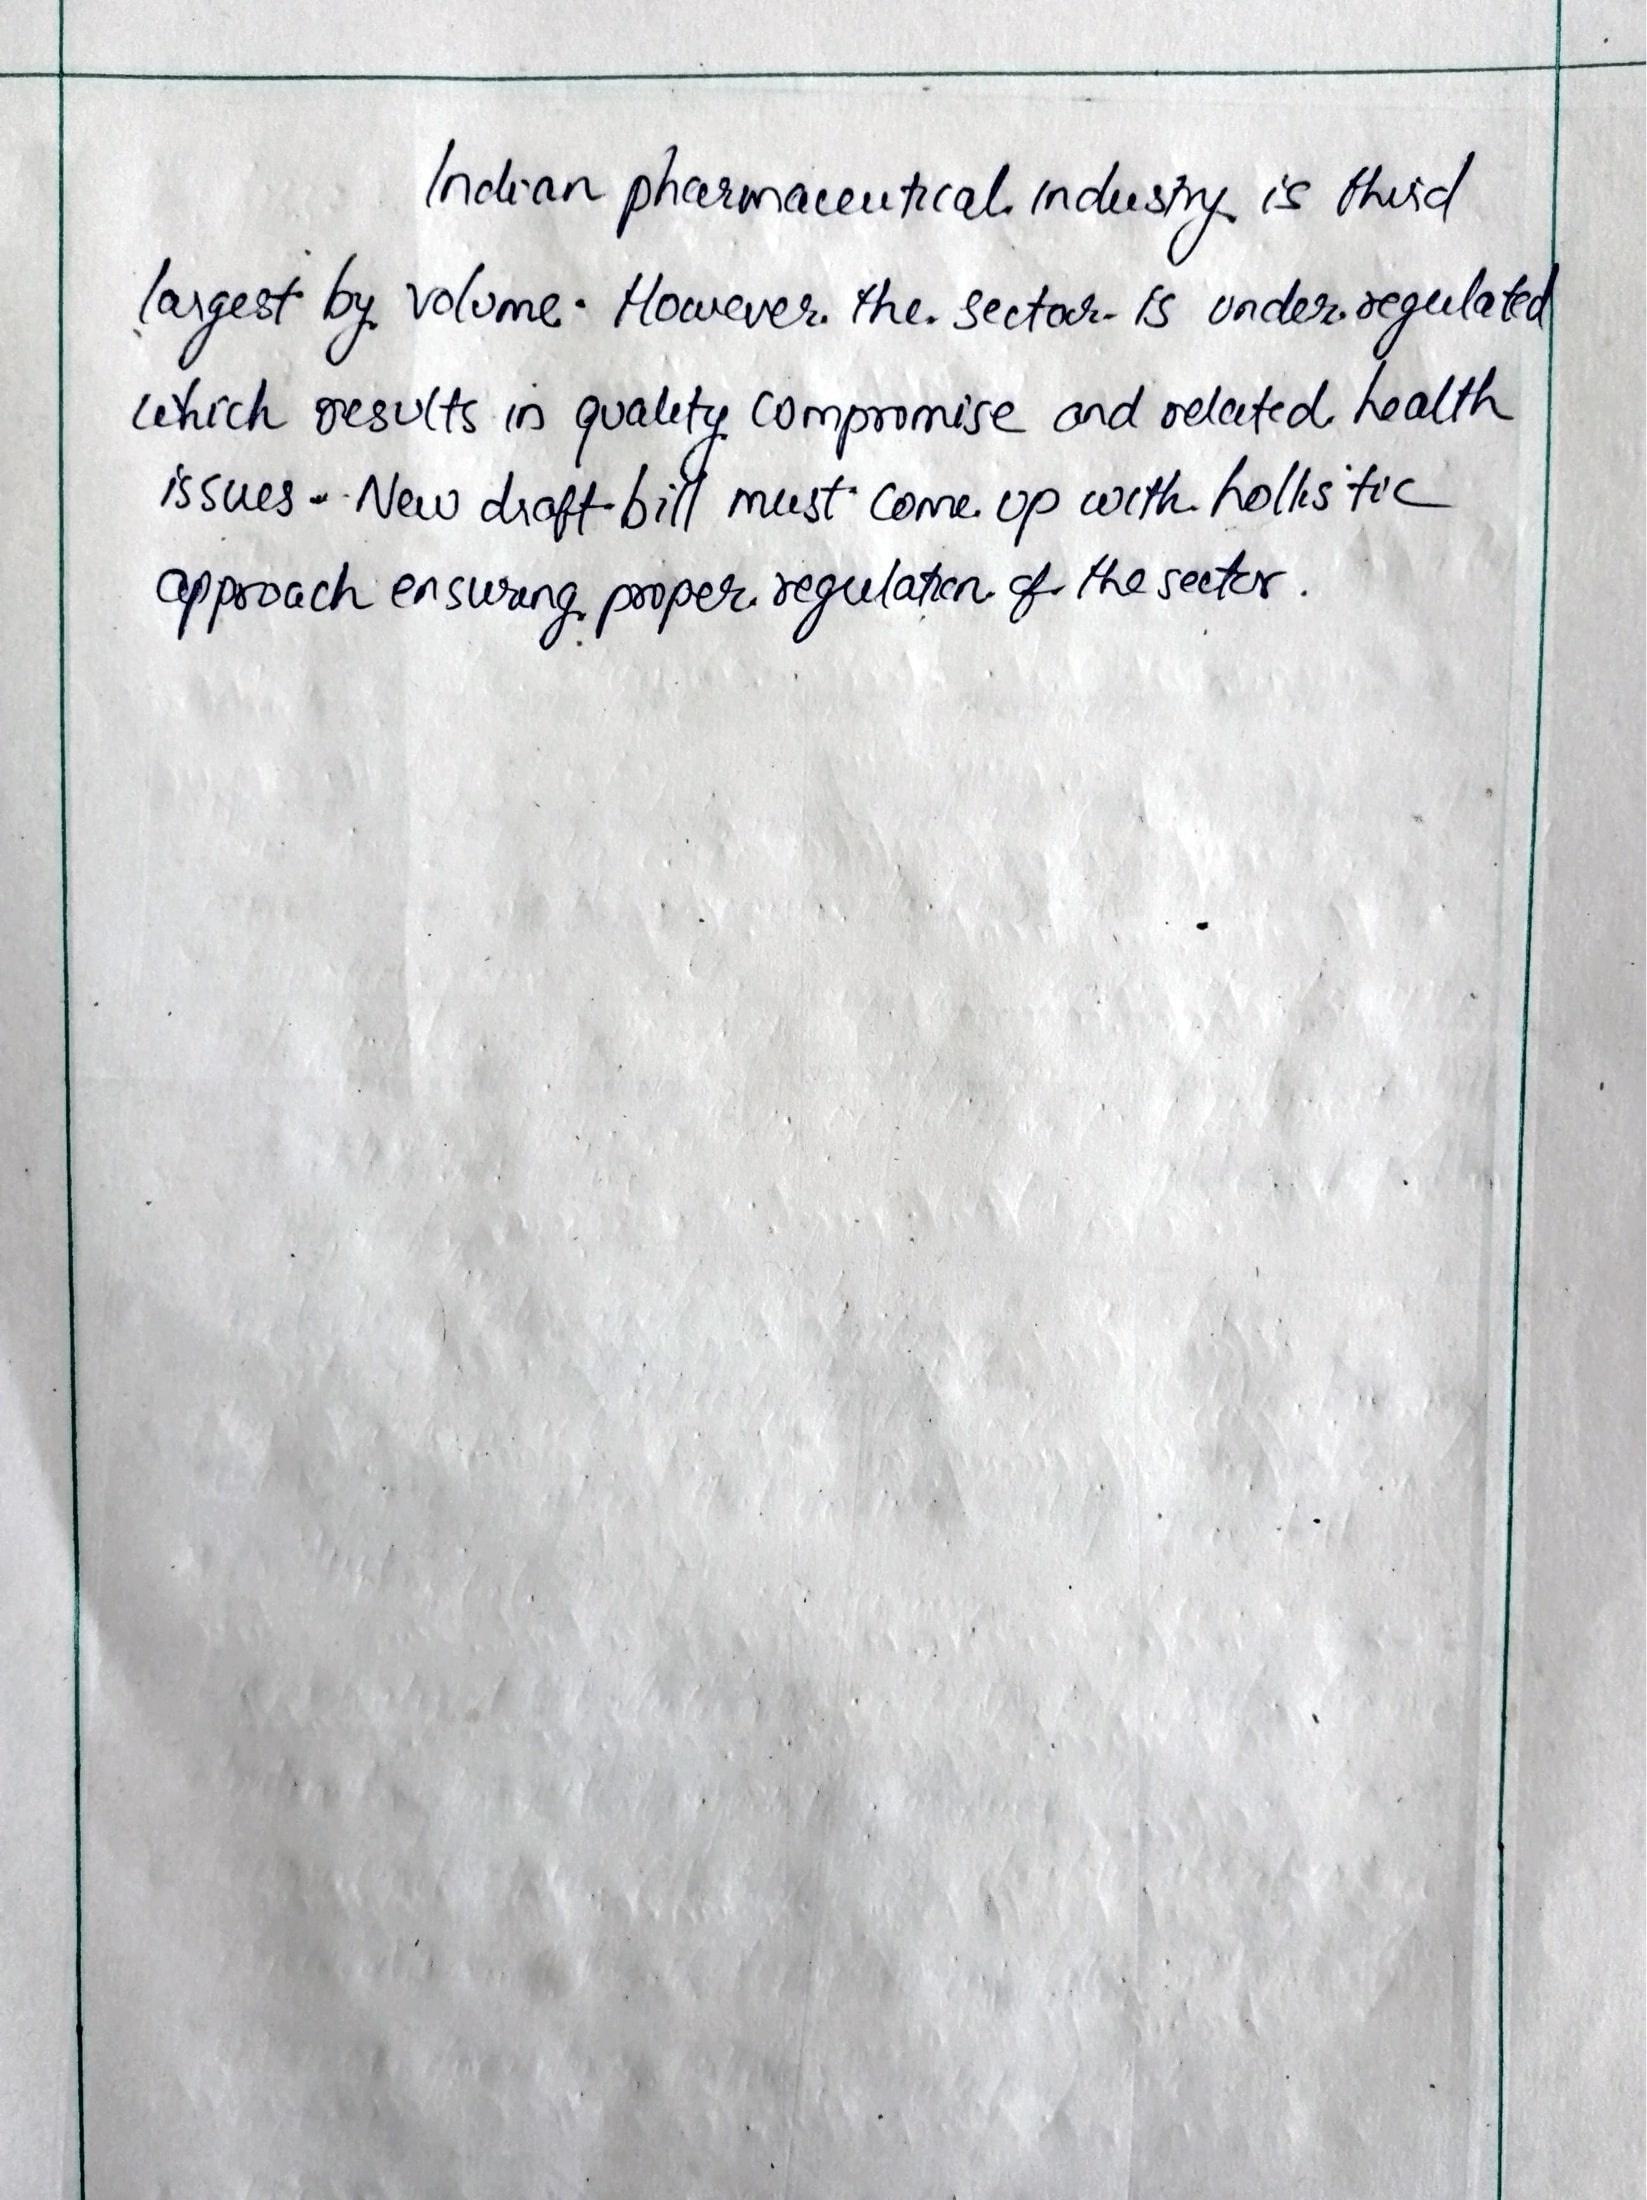 Indian pharmaceutical industry is third
largest by volume. However the sector is under regulated
which results in quality compromise and related health
issues. New draft bill must come up with hollistic
approach ensuring proper regulation of the sector.